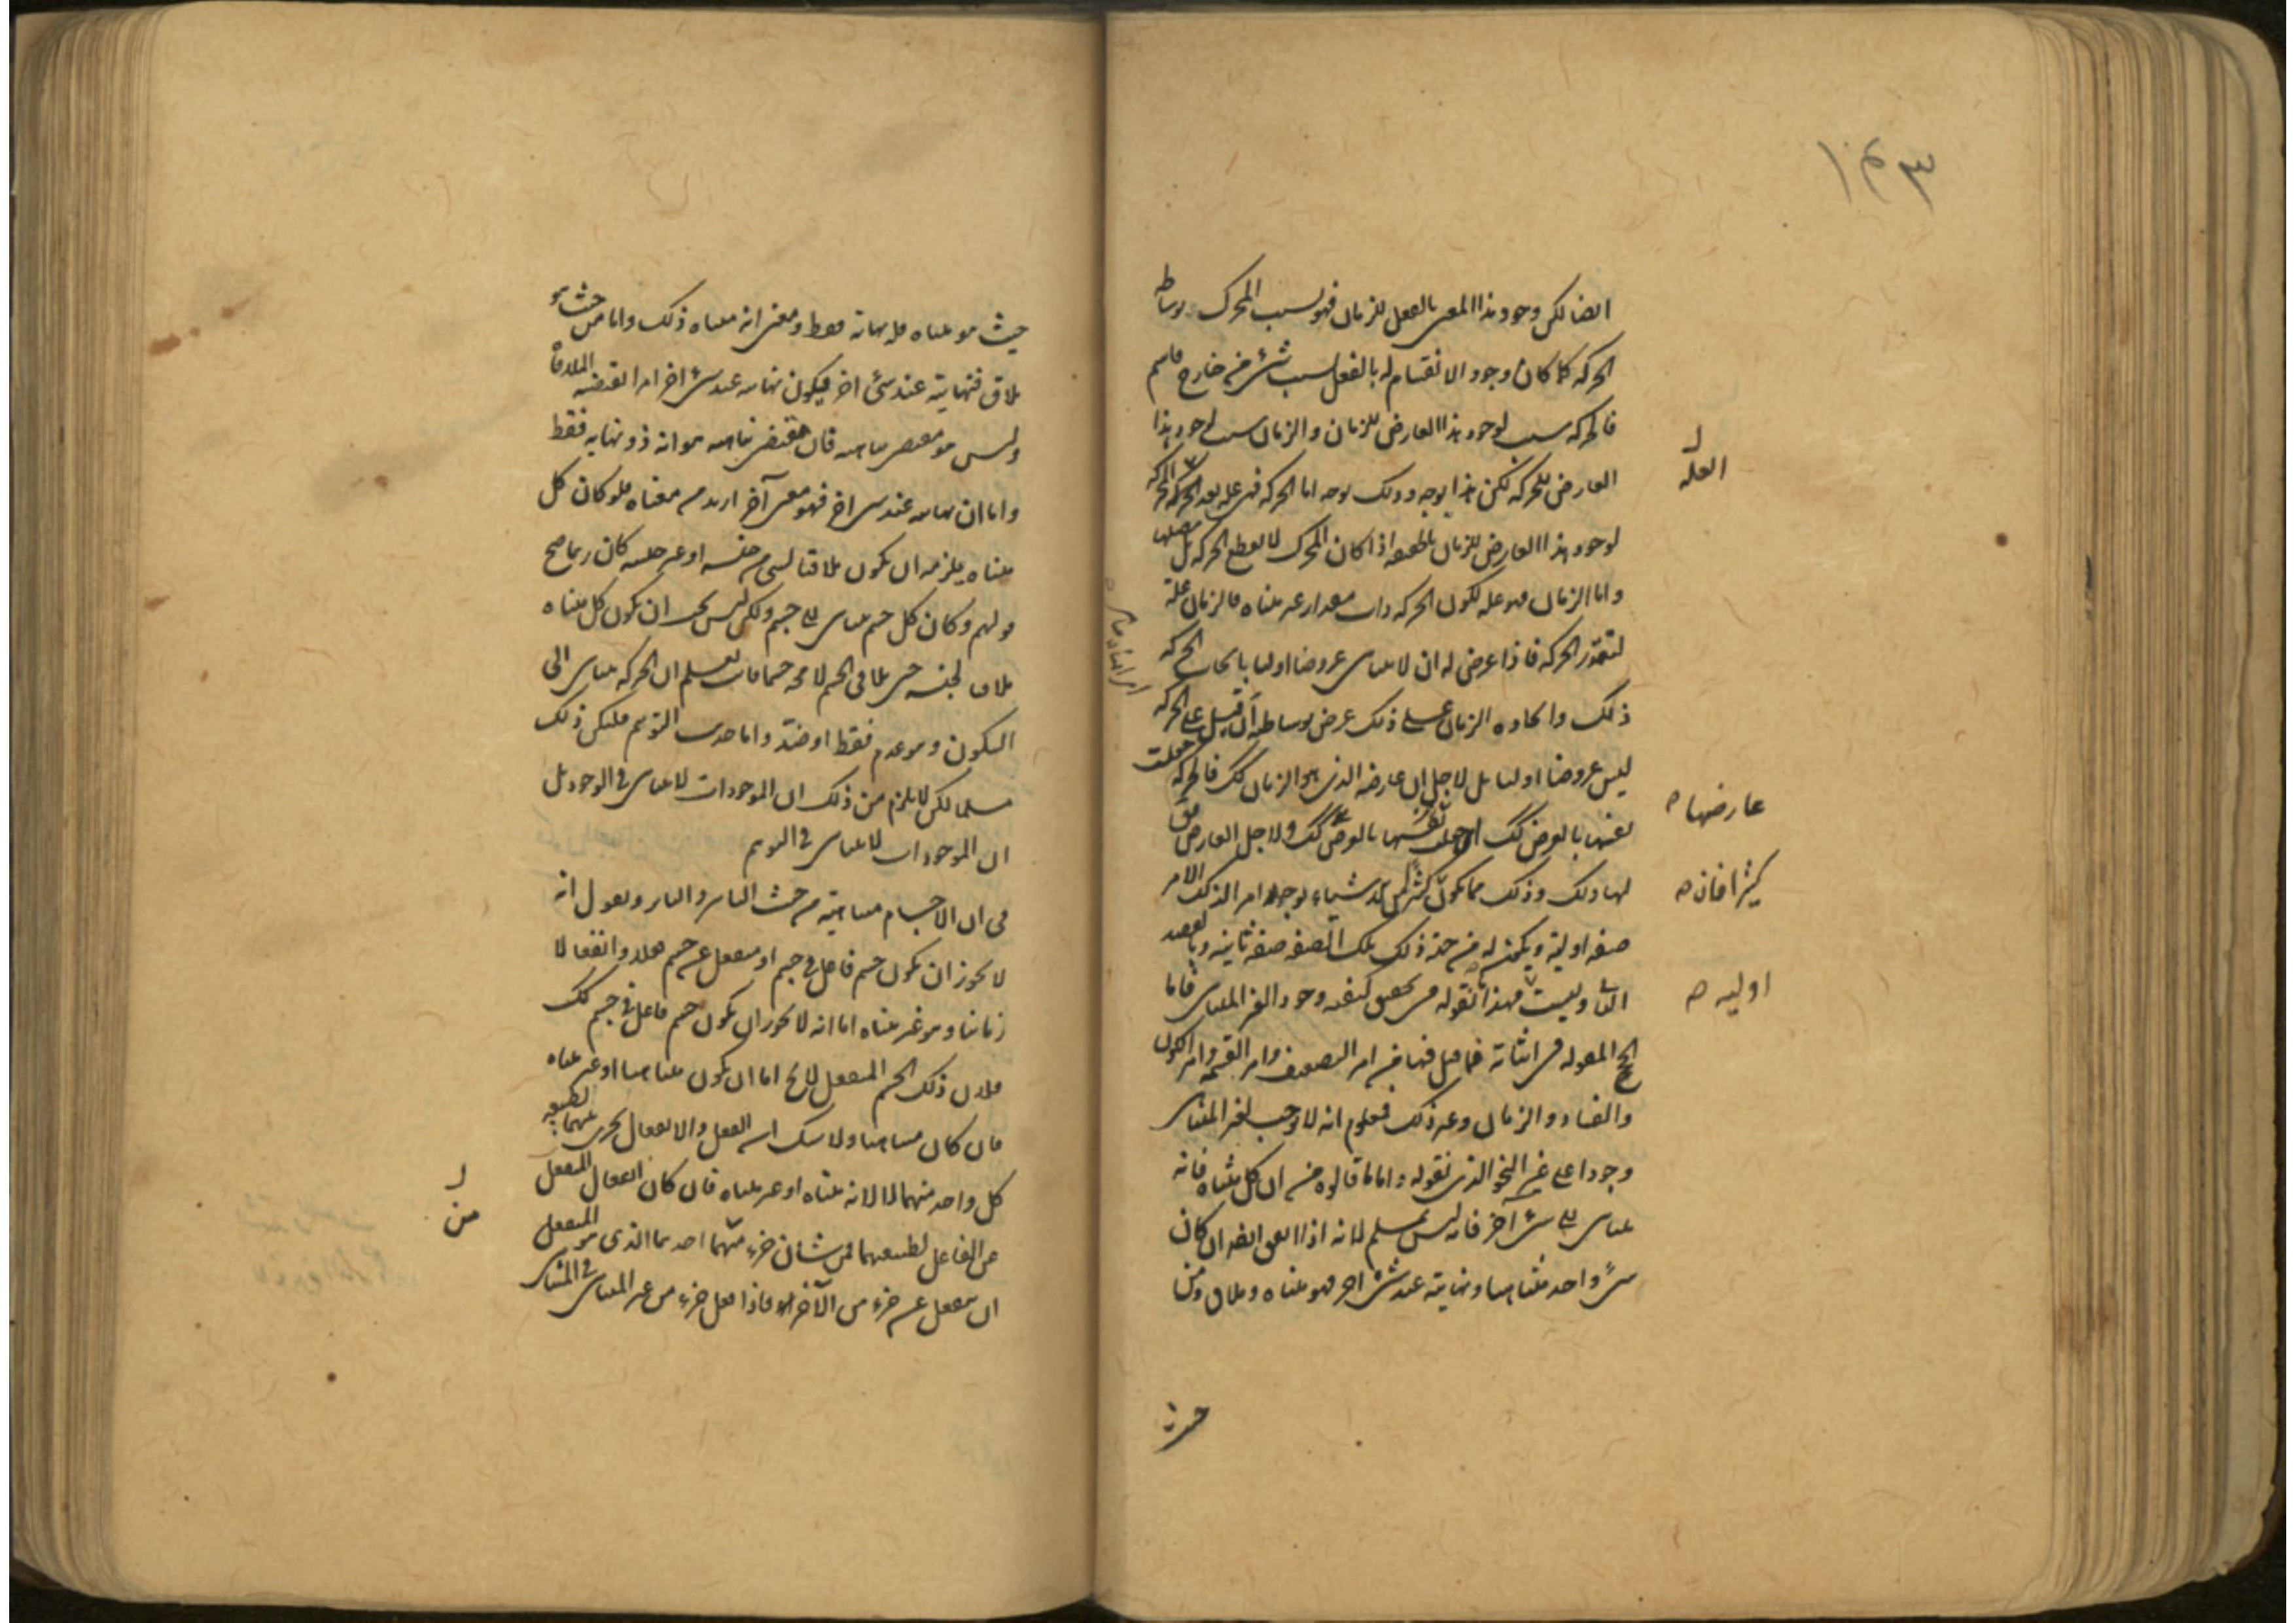 ١٤٣
ايضا لكن وجود هذا المعنى بالفعل للزمان فهو بسبب المحرك بوساطة
الحركة كما كان وجود الانقسام له بالفعل بسبب شيء من خارج قاسم
فالحركة سبب لوجود هذا العارض للزمان والزمان سبب لوجود هذا
العارض للحركة لكن هذا بوجه وذلك بوجه اما الحركة فهي علة
لوجود هذا العارض للزمان اذا كان المحرك لا يقطع الحركة بل يصلها
واما الزمان فهو علة لكون الحركة ذات مقدار غير متناه فالزمان علة
لتقدر الحركة فاذا عرض له ان لا يتناهى عروضا اوليا بايجاب الحركة
ذلك وايجاده الزمان على ذلك عرض بوساطة ان قيل على الحركة
ليس عروضا اوليا بل لاجل ان عارضه الذي هو الزمان كك فالحركة جعلت
بالعرض كك ولاجل العارض
لها ذلك وذلك مما يكون لاشياء يوجد امر الذلك الامر
صفة اولية ويكون له من جهة ذلك تلك الصفة صفة ثانية وبالقصد
الثاني وليست فهذا ما نقوله في تحقيق كيفية وجود الغير المتناهى فاما
الحجج المقولة في اثباته فما قيل فيها من امر التضعيف وامر القسمة وامر الكون
والفساد والزمان وغير ذلك فمعلوم انه لا يوجب لغير المتناهى
وجودا على غير النحو الذي نقوله واما ما قالوه من ان كل متناه فانه
يتناهى الى شيء آخر فانه ليس بمسلم لانه اذا اتفق ايضا ان كان
شيء واحد متناهيا ونهايته عند شيء آخر فهو متناه وملاق ومن
حيث
العلة
عارضها
كثيرا فانه
اولية
حيث هو متناه فله نهاية فقط ومعنى انه متناه ذلك واما من حيث هو
ملاق فنهايته عند شيء اخر فيكون نهايته عند شيء اخر امرا تقتضيه الملاقاة
وليس هو مقتضى تناهيه فان مقتضى تناهيه هو انه ذو نهاية فقط
واما ان نهايته عند شيء اخر فهو معنى آخر ازيد من معناه فلو كان كل
متناه يلزمه ان يكون ملاقيا لشيء من جنسه او غير جنسه كان ربما صح
قولهم وكان كل جسم يتناهى الى جسم ولكن ليس يجب ان يكون كل متناه
ملاقيا لجنسه حتى يلاقي الجسم لا محة جسما فانت تعلم ان الحركة يتناهى الى
السكون وهو عدم فقط او ضد واما حديث التوهم فليكن ذلك
مسلما لكن لا يلزم من ذلك ان الموجودات لا يتناهى في الوجود بل
ان الموجودات لا يتناهى في التوهم
في ان الاجسام متناهية من حيث التاثير والتاثر ونقول انه
لا يجوز ان يكون جسم فاعل في جسم او منفعل عن جسم فعلا وانفعالا
زمانيا وهو غير متناه اما انه لا يجوز ان يكون جسم فاعل في جسم كك
فلان ذلك الجسم المنفعل لا يخ اما ان يكون متناهيا او غير متناه
فان كان متناهيا ولا شك ان الفعل والانفعال يجري بينهما لطبيعة
كل واحد منهما لا لانه متناه او غير متناه فان كان انفعال المنفعل
من الفاعل لطبيعتهما فمن شان جزء منهما احدهما الذي هو المنفعل
ان ينفعل عن جزء من الآخر فاذا فعل جزء من غير المتناهى في المتناهى
من